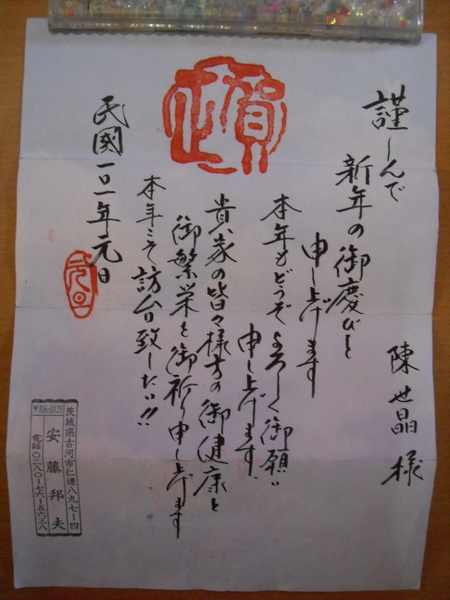 陳世晶様
謹しんで
新年の御慶びを
申し上げます
本年もどうぞよろしく御願い
申し上げます。
貴家の皆々様方の御健康と
御繁栄を御祈り申し上げます
本年こそ訪台致したい!!
民國一〇一年元日
賀正
元旦
茨城県古河市仁連八九七-四
安藤邦夫
電話〇二八〇-七六-五六三八